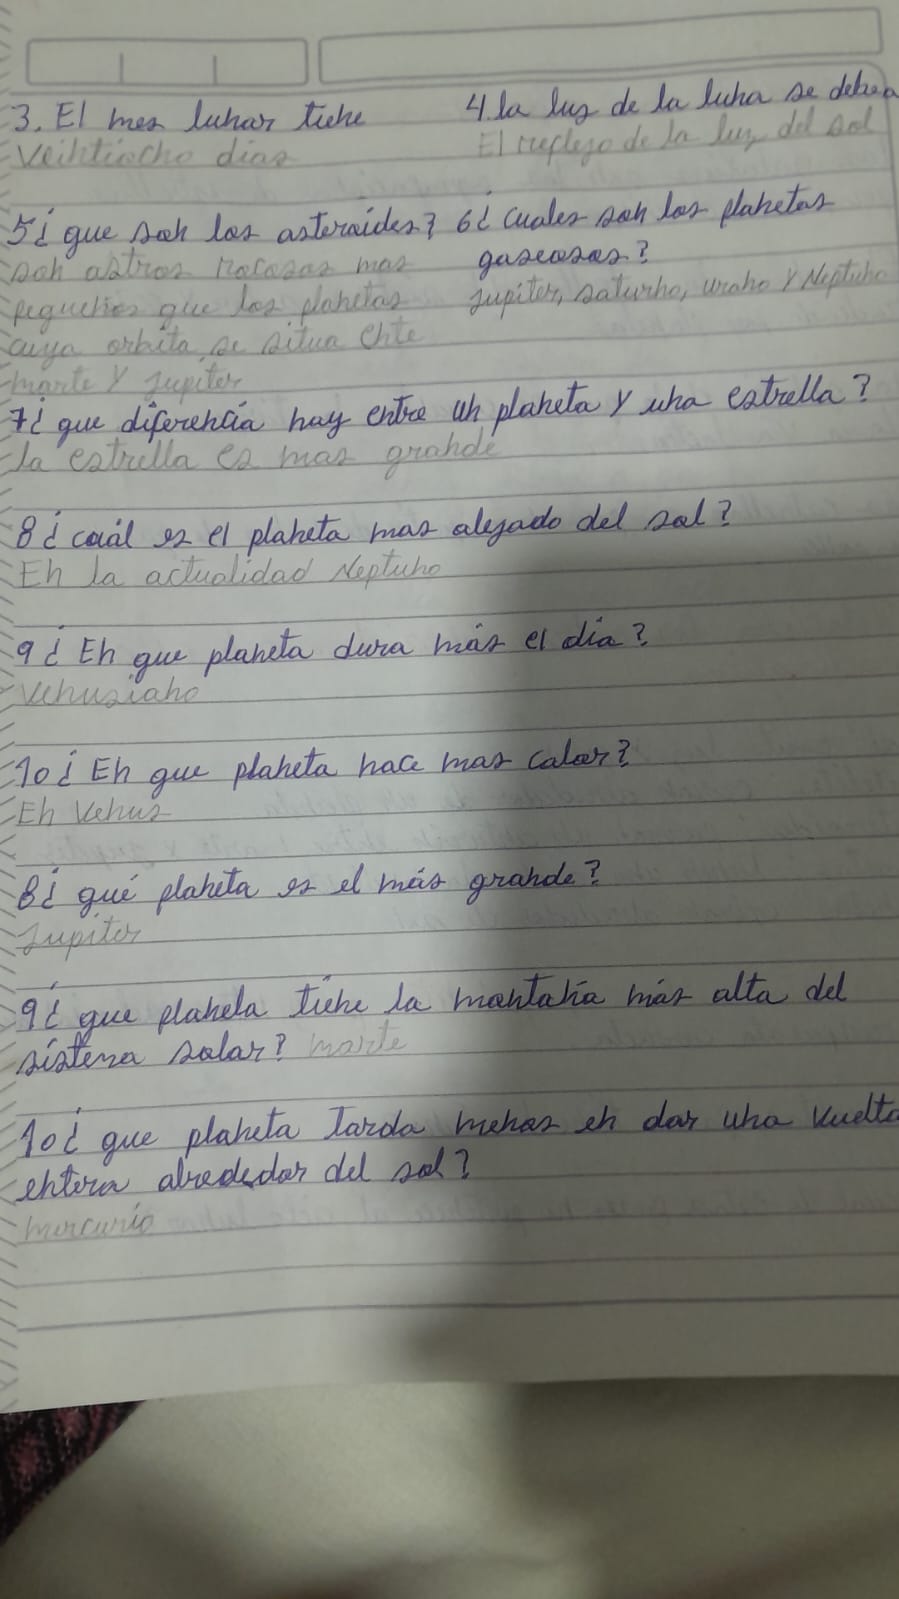 3. El mes lunar tiene
Veintiocho dias
4 la luz de la luna se debe a
El reflejo de la luz del sol
5¿ que son los asteroides?
son astros rocosos mas
pequeños que los planetas
cuya orbita se situa ente
marte y Jupiter
6¿ cuales son los planetas
gaseosos?
Jupiter, saturno, urano y Neptuno
7¿ que diferencia hay entre un planeta y una estrella?
la estrella es mas grande
8¿ cuál es el planeta mas alejado del sol?
En la actualidad Neptuno
9¿ En que planeta dura más el día?
Venusiano
10¿ En que planeta hace mas calor?
En Venus
8¿ qué planeta es el más grande?
Jupiter
9¿ que planeta tiene la montaña más alta del
sistema solar? marte
10¿ que planeta Tarda menos en dar una vuelta
entera alrededor del sol?
mercurio